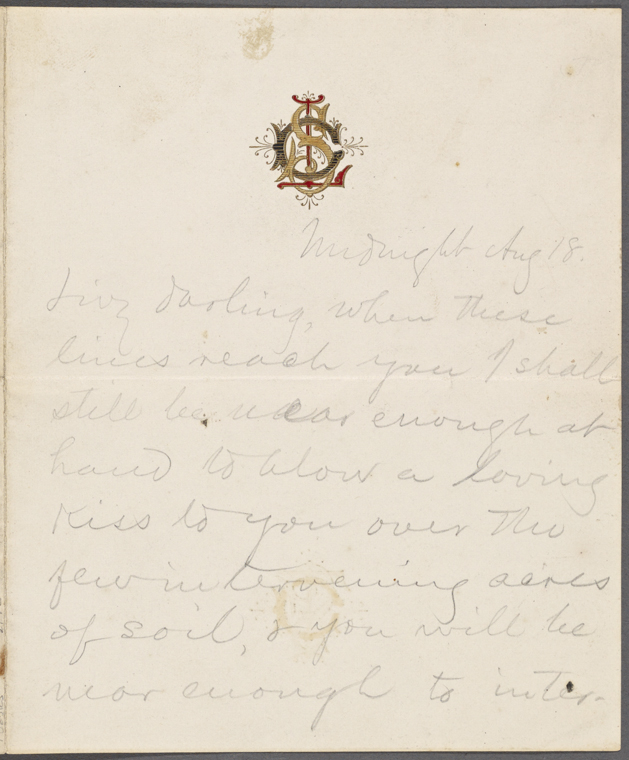 Midnight Aug 18.
Livy darling, when these
lines reach you I shall
still be near enough at
hand to blow a loving
kiss to you over the
few intervening acres
of soil, & you will be
near enough to inter-